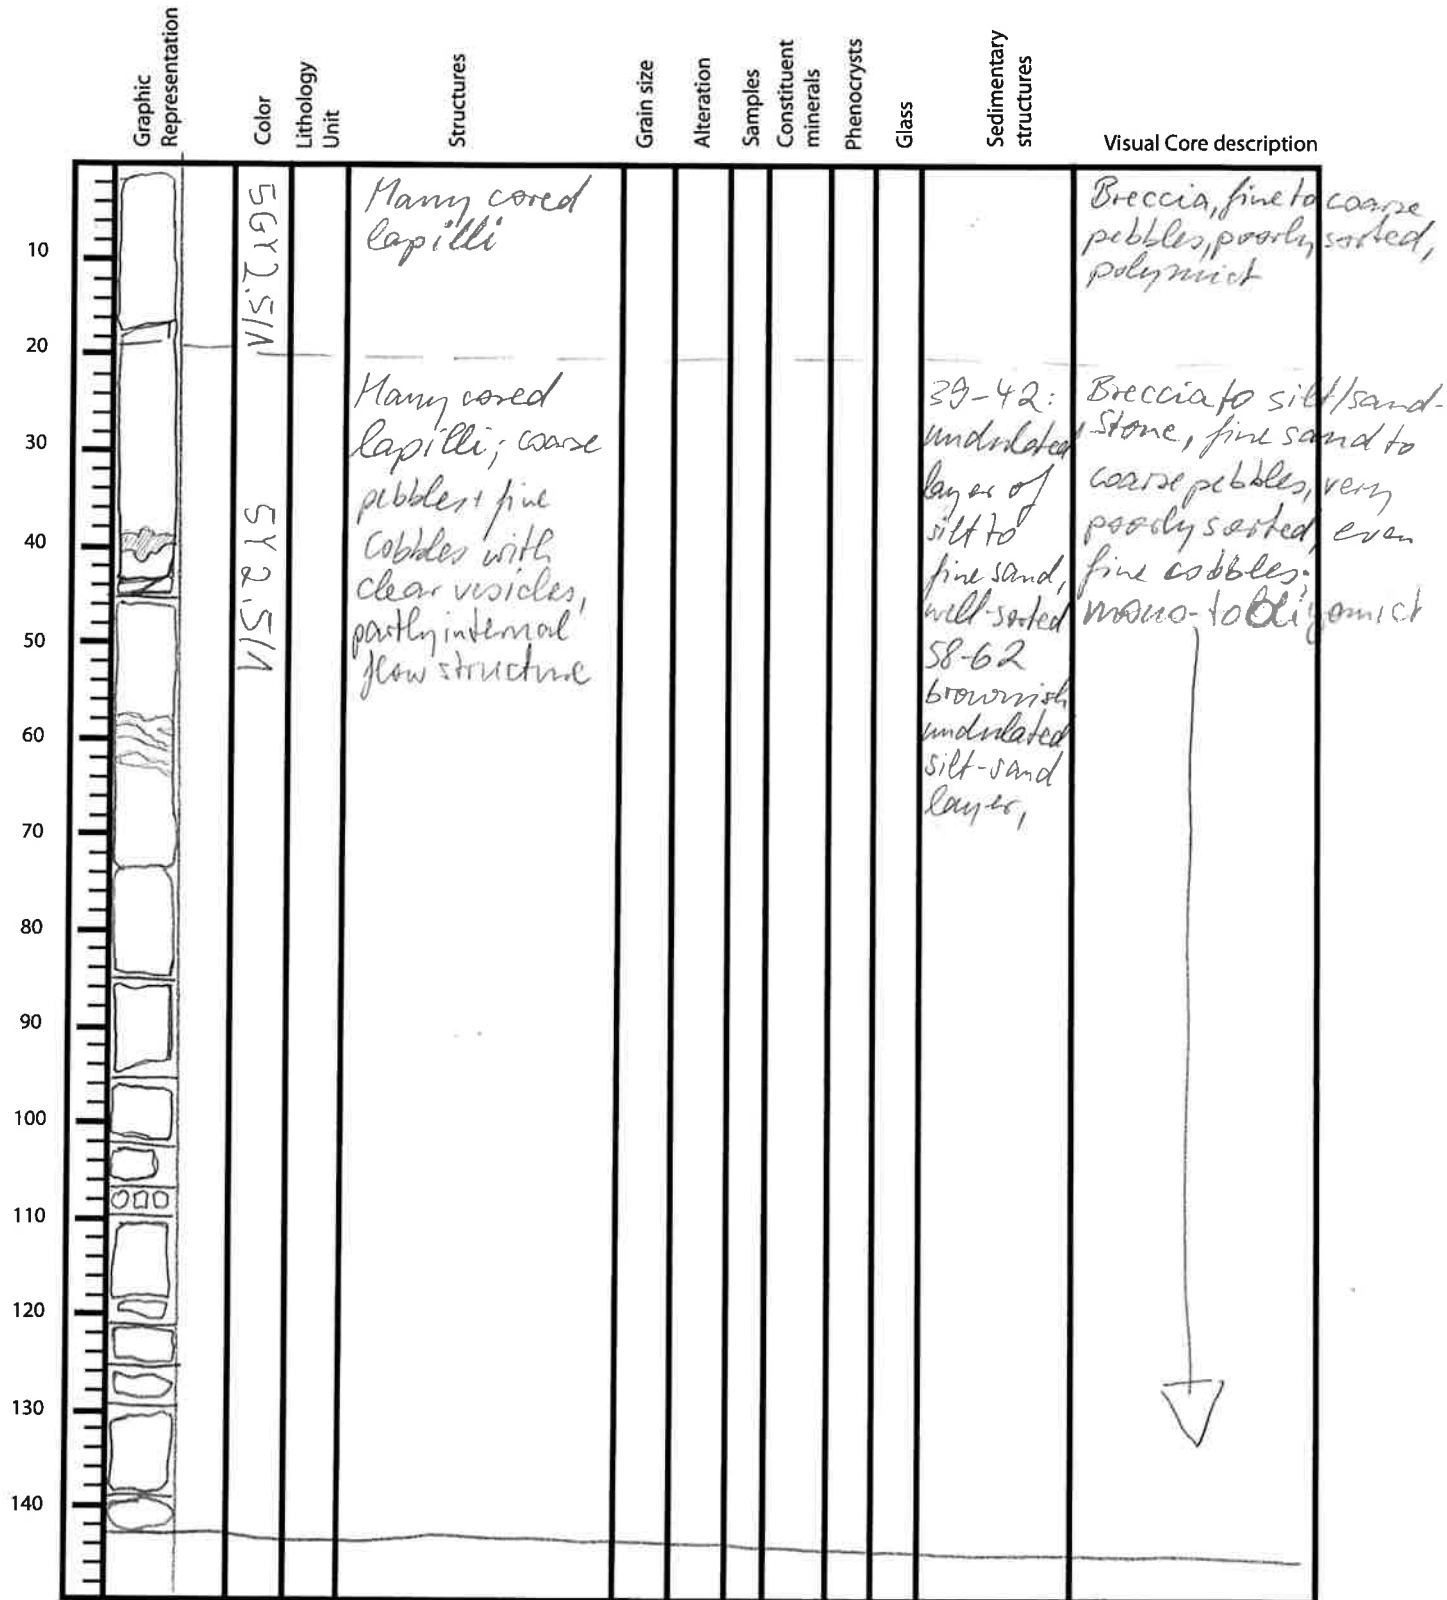 Graphic
Representation
Color
Lithology
Unit
Structures
Grain size
Alteration
Samples
Constituent
minerals
Phenocrysts
Glass
Sedimentary
structures
Visual Core description
10
20
30
40
50
60
70
80
90
100
110
120
130
140
5GY 2.5/1
Many cored
lapilli
Breccia, fine to coarse
pebbles, poorly sorted,
polymict
5Y 2.5/1
Many cored
lapilli; coarse
pebbles + fine
cobbles with
clear vesicles,
partly internal
flow structure
39-42:
undulated
layer of
silt to
fine sand,
well-sorted
58-62
brownish
undulated
silt-sand
layer,
Breccia to silt/sand-
stone, fine sand to
coarse pebbles, very
poorly sorted, even
fine cobbles;
mono- to oligomict